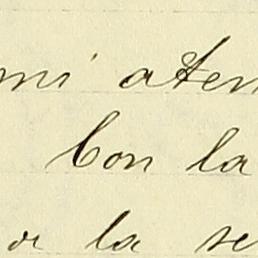 mi aten
Con la
a la se